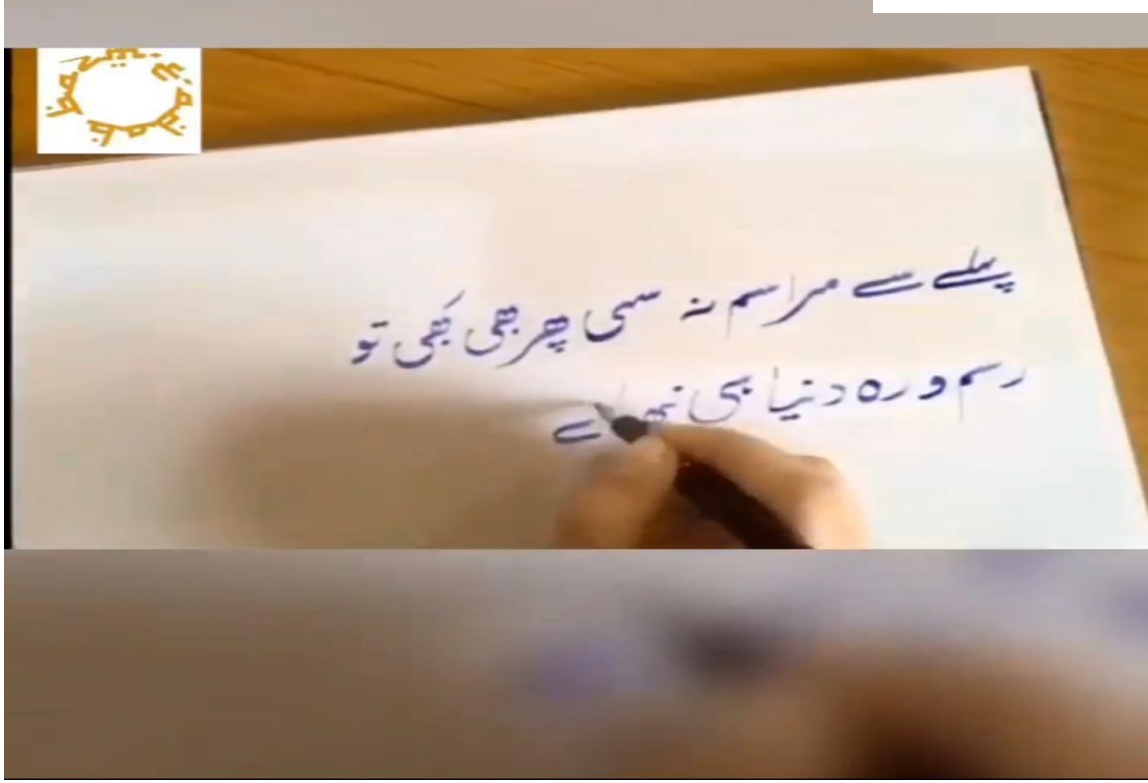 پہلے سے مراسم نہ سہی پھر بھی کبھی تو
رسم و رہ دنیا ہی